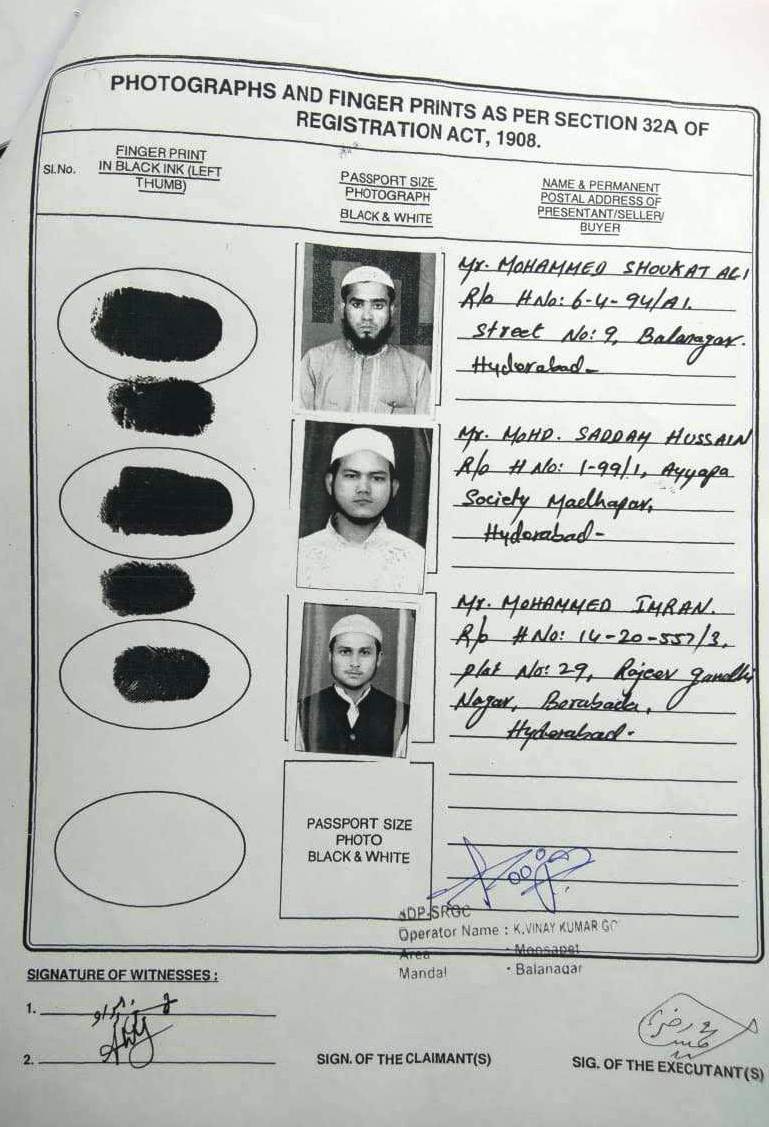 PHOTOGRAPHS AND FINGER PRINTS AS PER SECTION 32A OF
REGISTRATION ACT, 1908.
Sl.No.
FINGER PRINT
IN BLACK INK (LEFT
THUMB)
PASSPORT SIZE
PHOTOGRAPH
BLACK & WHITE
NAME & PERMANENT
POSTAL ADDRESS OF
PRESENTANT/SELLER/
BUYER
Mr. MOHAMMED SHOUKAT ALI
R/o H No: 6-4-94/A1.
Street No: 9, Balanagar.
Hyderabad-
Mr. MOHD. SADDAM HUSSAIN
R/o H No: 1-99/1, Ayyapa
Society Madhapar,
Hyderabad-
Mr. MOHAMMED IMRAN.
R/o H No: 14-20-557/3,
plot No: 29, Rajeev gandhi
Nagar, Borabada,
Hyderabad-
PASSPORT SIZE
PHOTO
BLACK & WHITE
Operator Name : K.VINAY KUMAR
Area : Moosapet
Mandal : Balanagar
SIGNATURE OF WITNESSES :
1.
2.
SIGN. OF THE CLAIMANT(S)
SIG. OF THE EXECUTANT(S)